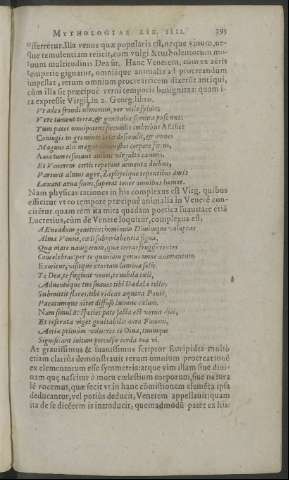 MYTHOLOGIAE LIB. IIII. 393
asserêtur. Illa venus quæ popularis est, neque vinolo,
que temulentiam reiicit, cum vulgi &
num multitudinis Dea sit. Hanc Venerem, cum ex aëris
temperie gignatur, omniáque animalia ad procreandum
impellat, rerum omnium procreatricem dixerũt antiqui,
cùm illa sit præcipuè verni temporis benignitas: quam i-
ta expressit Virgil. in 2. Georg. libro.
Vere adeò frondi nemorum, ver vtile syluis:
Vere tument terræ, & genitalia semina poscunt.
Tum pater omnipotens fœcundis imbribus Aether
Coniugis in gremium lætæ descendit, & omnes
Magnus alit magno commistus corpore fœtus,
Auia tum resonant auibus virgulta canoris,
Et Venerem certis repetunt armenta diebus,
Parturit almus ager, Zephyrique tepentibus auris
Laxant arua sinus, superat tener omnibus humor.
Nam physicas rationes in his complexus est Virg. quibus
efficitur vt eo tempore præcipuè animalia in Venerē con-
citētur. quam rem ita mira quadam poëtica suauitate etiā
Lucretius, cùm de Venere loquitur, complexus est,
AEneadum genitrix, hominum Diuũmque voluptas
Alma Venus, cœli subter labentia signa,
Quæ mare nauigerum, quæ terras frugiferentes
Concelebras: per te quoniam genus omne animantum
Concipitur, visitque exortum lumina solis.
Te Dea, te fugiunt venti, te nubila cœli,
Aduentúmque tuũ: suaues tibi Dædala tellus
Submittit flores, tibi rident æquora Ponti,
Pacatúmque nitet diffuso lumine cælum.
Nam simul ac species patefacta est verna diei,
Et reserata viget genitabilis aura Fauoni,
Aëriæ primùm volucres te Diua, tuúmque
Significant initum perculsæ corda tua vi.
At grauissimus & suauissimus scriptor Euripides multò
etiam clariùs demonstrauit rerum omnium procreationē
ex elementorum esse symmetria: atque vim illam siue diui-
nam quę nascitur è motu cœlestium corporum, siue natura
lē vocemus, quæ fecit vt in hanc cōmistionem elementa ipsa
deducantur, vel potiùs deducit, Venerem appellauit: quam
ita de se dicērem introducit, quemadmodū patet ex his: